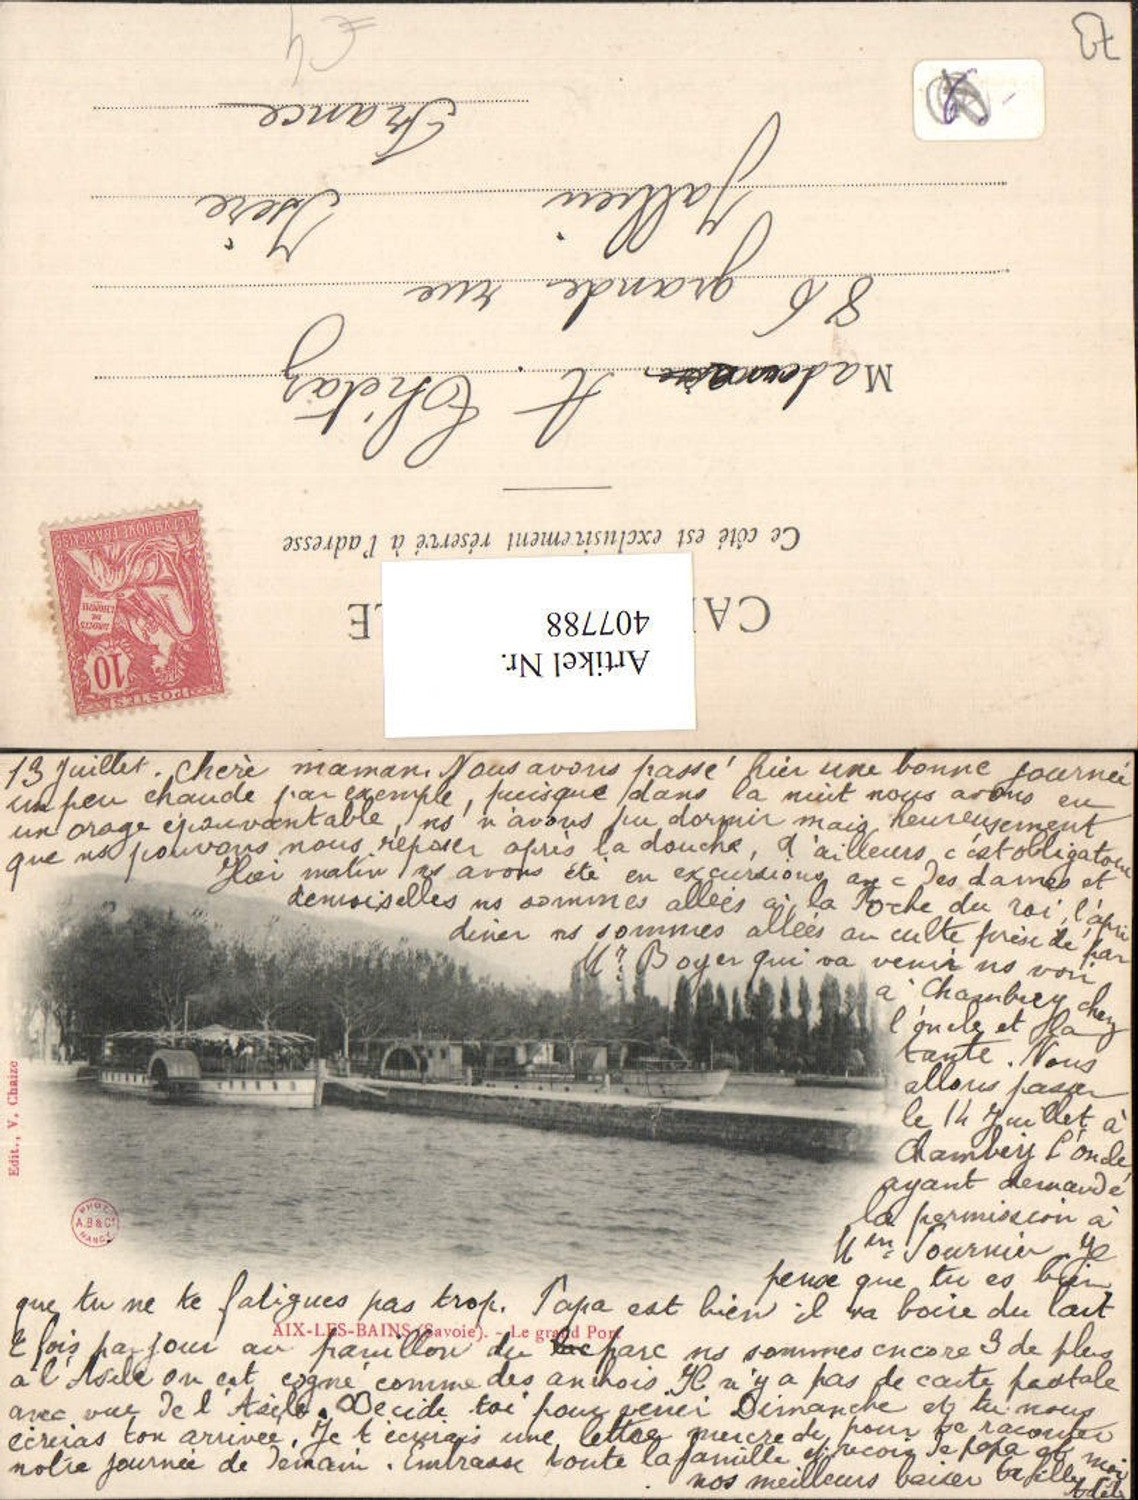 73
France
Jallieu Isère
86 grande rue
Madame A. Thétaz
Ce côté est exclusivement réservé à l'adresse
CA LE
Artikel Nr.
407788
REPUBLIQUE FRANÇAISE
DROITS DE L'HOMME
10
POSTES
13 Juillet. Chère maman. Nous avons passé hier une bonne journée
un peu chaude par exemple, puisque dans la nuit nous avons eu
un orage épouvantable, ns n'avons pu dormir mais heureusement
que ns pouvons nous reposer après la douche, d'ailleurs c'est obligatoire
Hier matin ns avons été en excursions avec des dames et
demoiselles ns sommes allées à la Roche du roi, l'après
diner ns sommes allées au culte présidé par
Mr Boyer qui va venir ns voir
à Chambéry chez
l'oncle et la
tante. Nous
allons passer
le 14 Juillet à
Chambéry l'oncle
ayant demandé
la permission à
Mme Fournier. Je
pense que tu es bien,
que tu ne te fatigues pas trop. Papa est bien il va boire du lait
AIX-LES-BAINS (Savoie). - Le grand Port
2 fois par jour au pavillon du parc ns sommes encore 3 de plus
à l'Asile on est cogné comme des anchois. Il n'y a pas de carte postale
avec vue de l'Asile. Décide toi pour venir Dimanche et tu nous
écriras ton arrivée. Je t'écrirais une lettre mercredi pour te raconter
notre journée de demain. Embrasse toute la famille et reçois de papa et moi
nos meilleurs baiser ta fille
Adèle
Edit., V. Chaize
PHOT.
A.B & Cie
NANCY